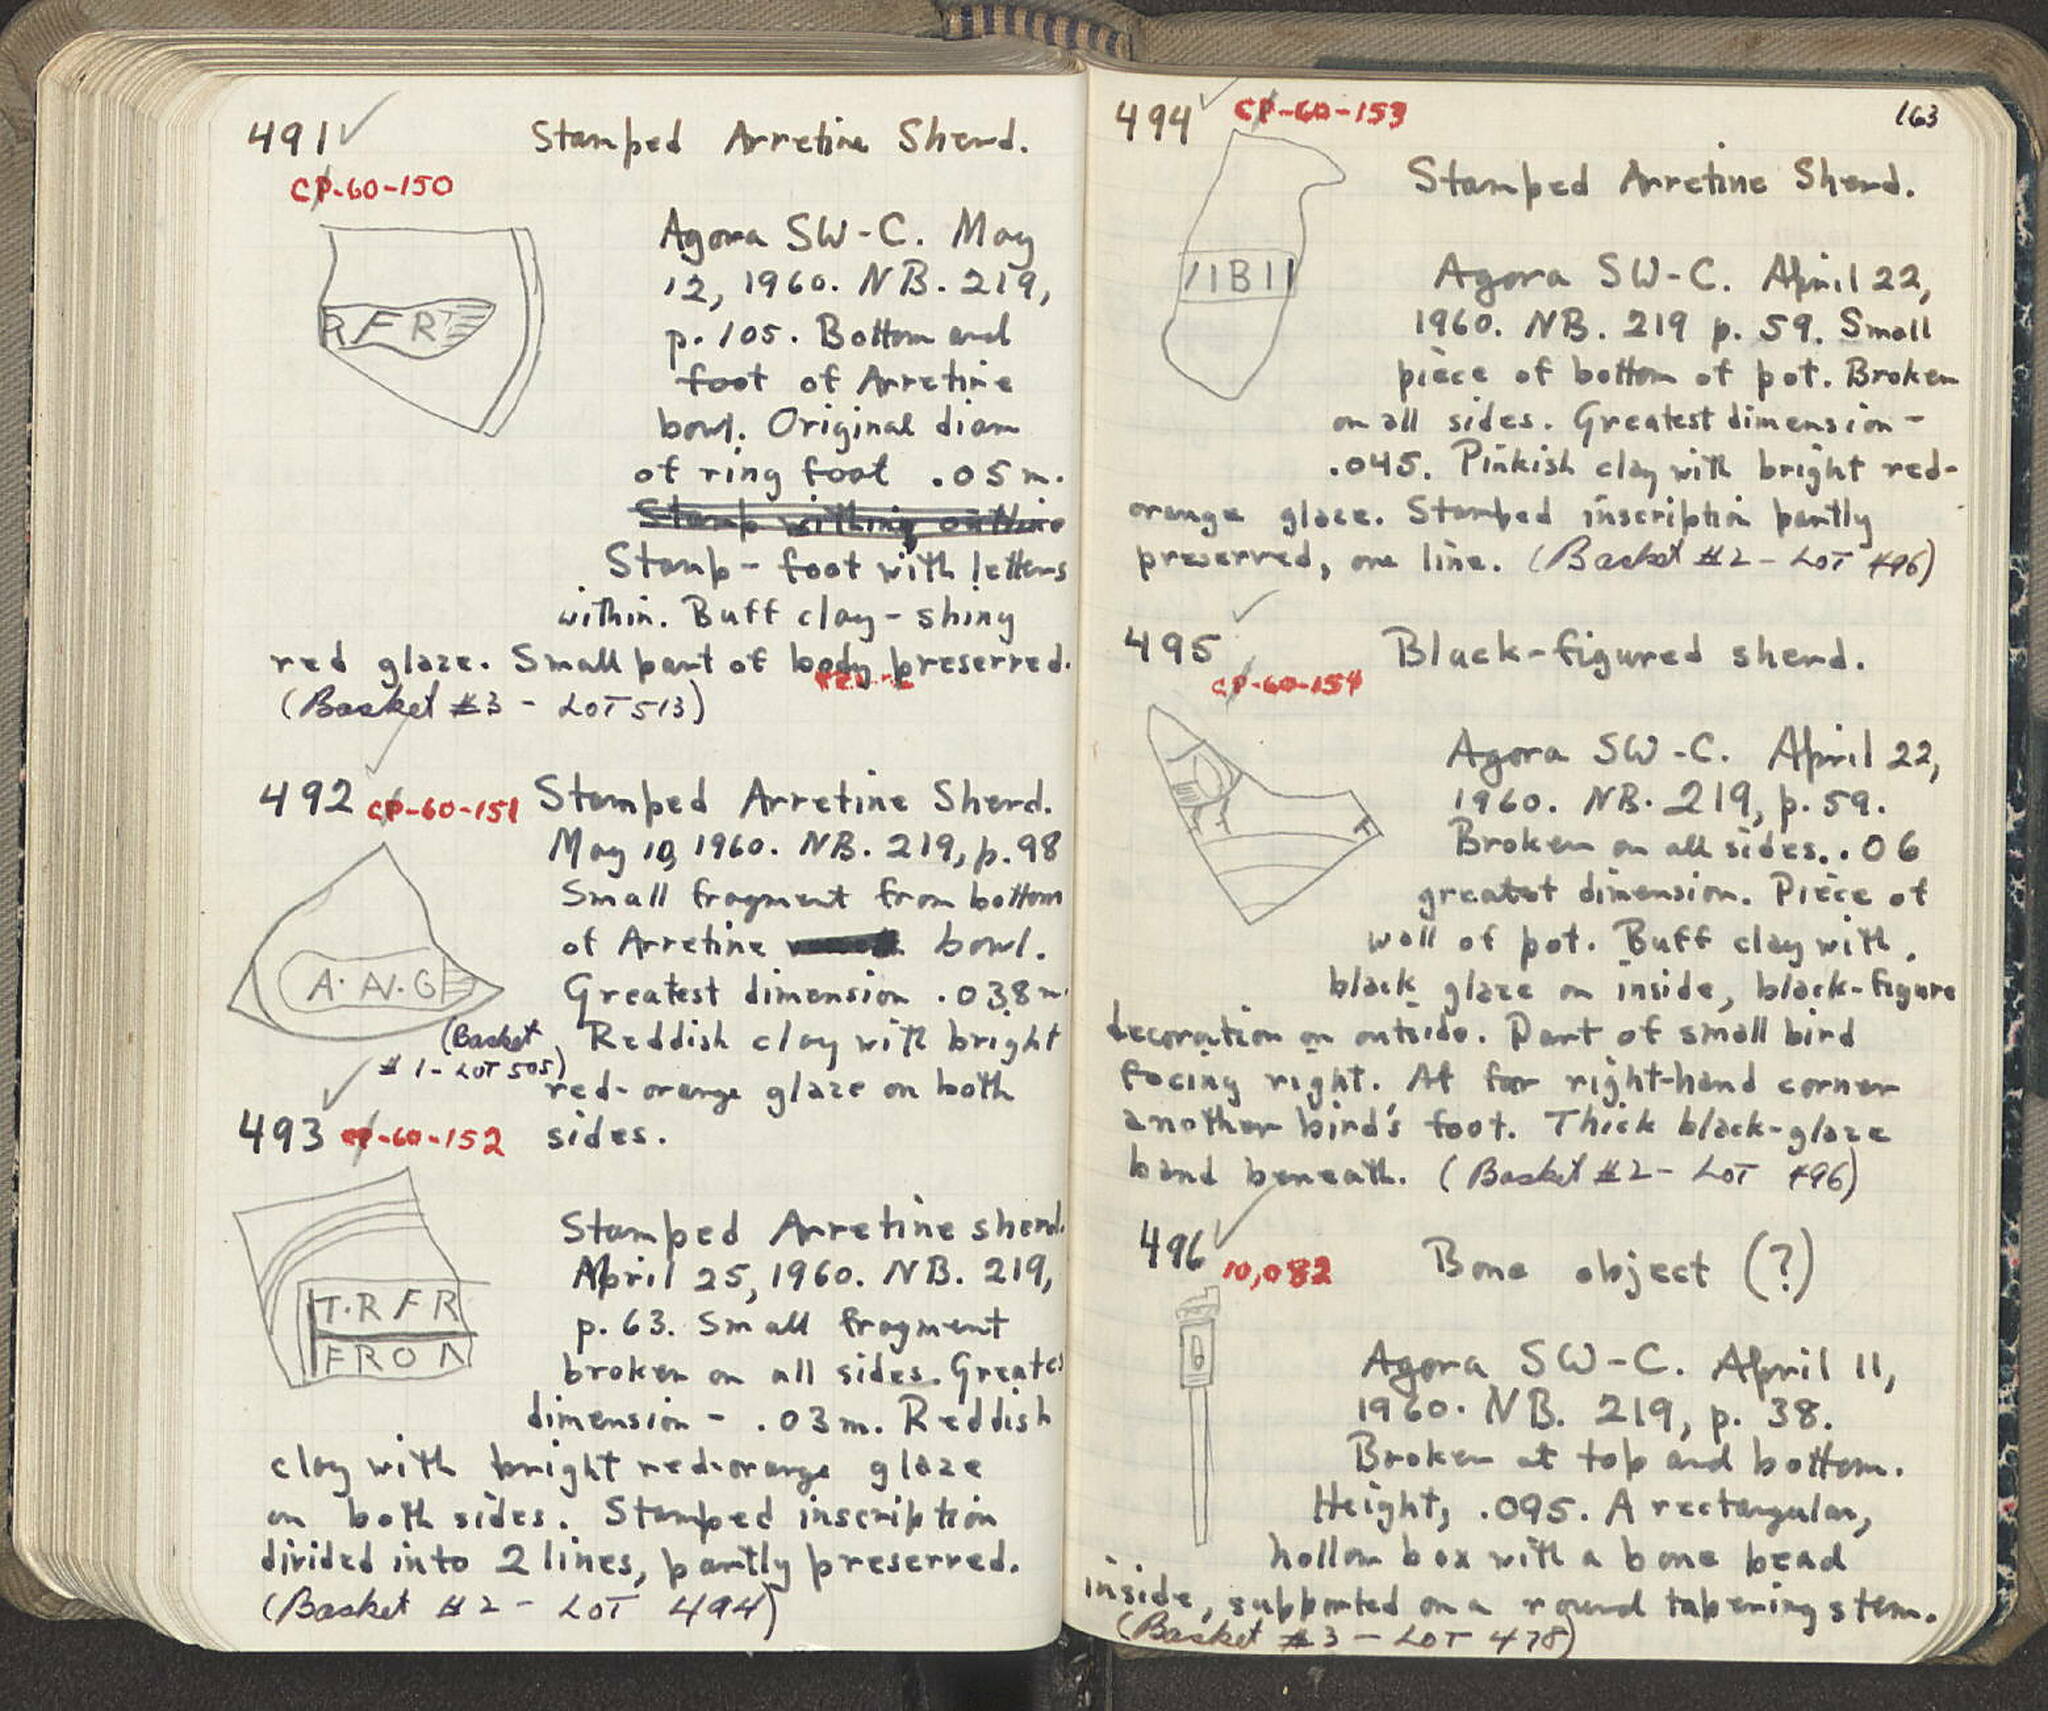 491 ✓ Stamped Arretine Sherd.
CP-60-150
Agora SW-C. May
12, 1960. NB. 219,
p. 105. Bottom and
foot of Arretine
bowl. Original diam
of ring foot .05 m.
Stamp withing outline
Stamp - foot with letters
within. Buff clay - shiny
red glaze. Small part of body preserved.
(Basket #3 - LOT 513)
R F R
492 CP-60-151 Stamped Arretine Sherd.
May 10, 1960. NB. 219, p. 98
Small fragment from bottom
of Arretine bowl.
Greatest dimension .038 m.
Reddish clay with bright
red-orange glaze on both
sides.
A. AV. G
(Basket
#1 - LOT 505)
493 CP-60-152
Stamped Arretine sherd.
April 25, 1960. NB. 219,
p. 63. Small fragment
broken on all sides. Greates
dimension - .03 m. Reddish
clay with bright red-orange glaze
on both sides. Stamped inscription
divided into 2 lines, partly preserved.
(Basket #2 - LOT 494)
T.R F R
F R O Λ
163
494 ✓ CP-60-153
Stamped Arretine Sherd.
Agora SW-C. April 22,
1960. NB. 219 p. 59. Small
piece of bottom of pot. Broken
on all sides. Greatest dimension -
.045. Pinkish clay with bright red-
orange glaze. Stamped inscription partly
preserved, one line. (Basket #2 - LOT 496)
I I B I I
495 ✓ Black-figured sherd.
CP-60-154
Agora SW-C. April 22,
1960. NB. 219, p. 59.
Broken on all sides. .06
greatest dimension. Piece of
wall of pot. Buff clay with
black glaze on inside, black-figure
decoration on outside. Part of small bird
facing right. At far right-hand corner
another bird's foot. Thick black-glaze
band beneath. (Basket #2 - LOT 496)
496 ✓ 10,082 Bone object (?)
Agora SW-C. April 11,
1960. NB. 219, p. 38.
Broken at top and bottom.
Height, .095. A rectangular,
hollow box with a bone bead
inside, supported on a round tapering stem.
(Basket #3 - LOT 478)